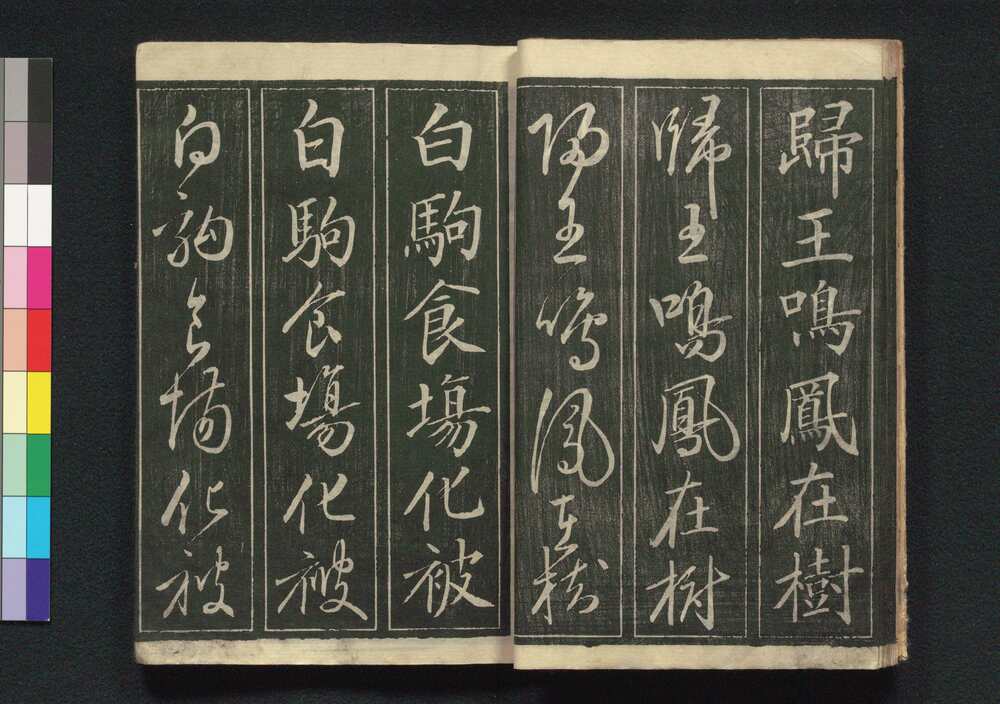 歸王鳴鳳在樹
歸王鳴鳳在樹
歸王鳴鳳在樹
白駒食場化被
白駒食場化被
白駒食場化被